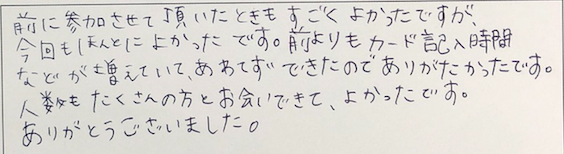 前に参加させて頂いたときもすごくよかったですが、
今回もほんとによかったです。前よりもカード記入時間
などが増えていて、あわてずできたのでありがたかったです。
人数もたくさんの方とお会いできて、よかったです。
ありがとうございました。